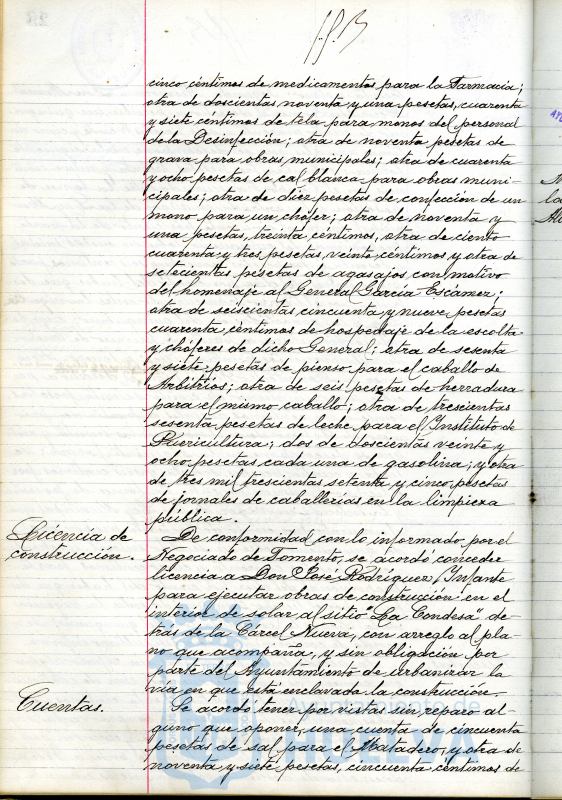 cinco céntimos de medicamentos para la Farmacia;
otra de doscientas noventa y una pesetas, cuarenta
y siete céntimos de tela para monos del personal
de la Desinfección; otra de noventa pesetas de
grava para obras municipales; otra de cuarenta
y ocho pesetas de cal blanca para obras muni-
cipales; otra de diez pesetas de confección de un
mono para un chófer; otra de noventa y
una pesetas, treinta céntimos, otra de ciento
cuarenta y tres pesetas, veinte céntimos y otra de
setecientas pesetas de agasajos con motivo
del homenaje al General García Escámez;
otra de seiscientas cincuenta y nueve pesetas
cuarenta céntimos de hospedaje de la escolta
y chóferes de dicho General; otra de sesenta
y siete pesetas de pienso para el caballo de
Arbitrios; otra de seis pesetas de herradura
para el mismo caballo; otra de trescientas
sesenta pesetas de leche para el Instituto de
Puericultura; dos de doscientas veinte y
ocho pesetas cada una de gasolina; y otra
de tres mil trescientas setenta y cinco pesetas
de jornales de caballerías en la limpieza
pública.
Licencia de
construcción.
De conformidad con lo informado por el
Negociado de Fomento, se acordó conceder
licencia a Don José Rodríguez Infante
para ejecutar obras de construcción en el
interior de solar al sitio "La Condesa" de-
trás de la Cárcel Nueva, con arreglo al pla-
no que acompaña, y sin obligación por
parte del Ayuntamiento de urbanizar la
vía en que está enclavada la construcción.
Cuentas.
Se acordó tener por vistas sin reparo al-
guno que oponer, una cuenta de cincuenta
pesetas de sal para el Matadero, y otra de
noventa y siete pesetas, cincuenta céntimos de
Ayuntamiento de
HUELVA